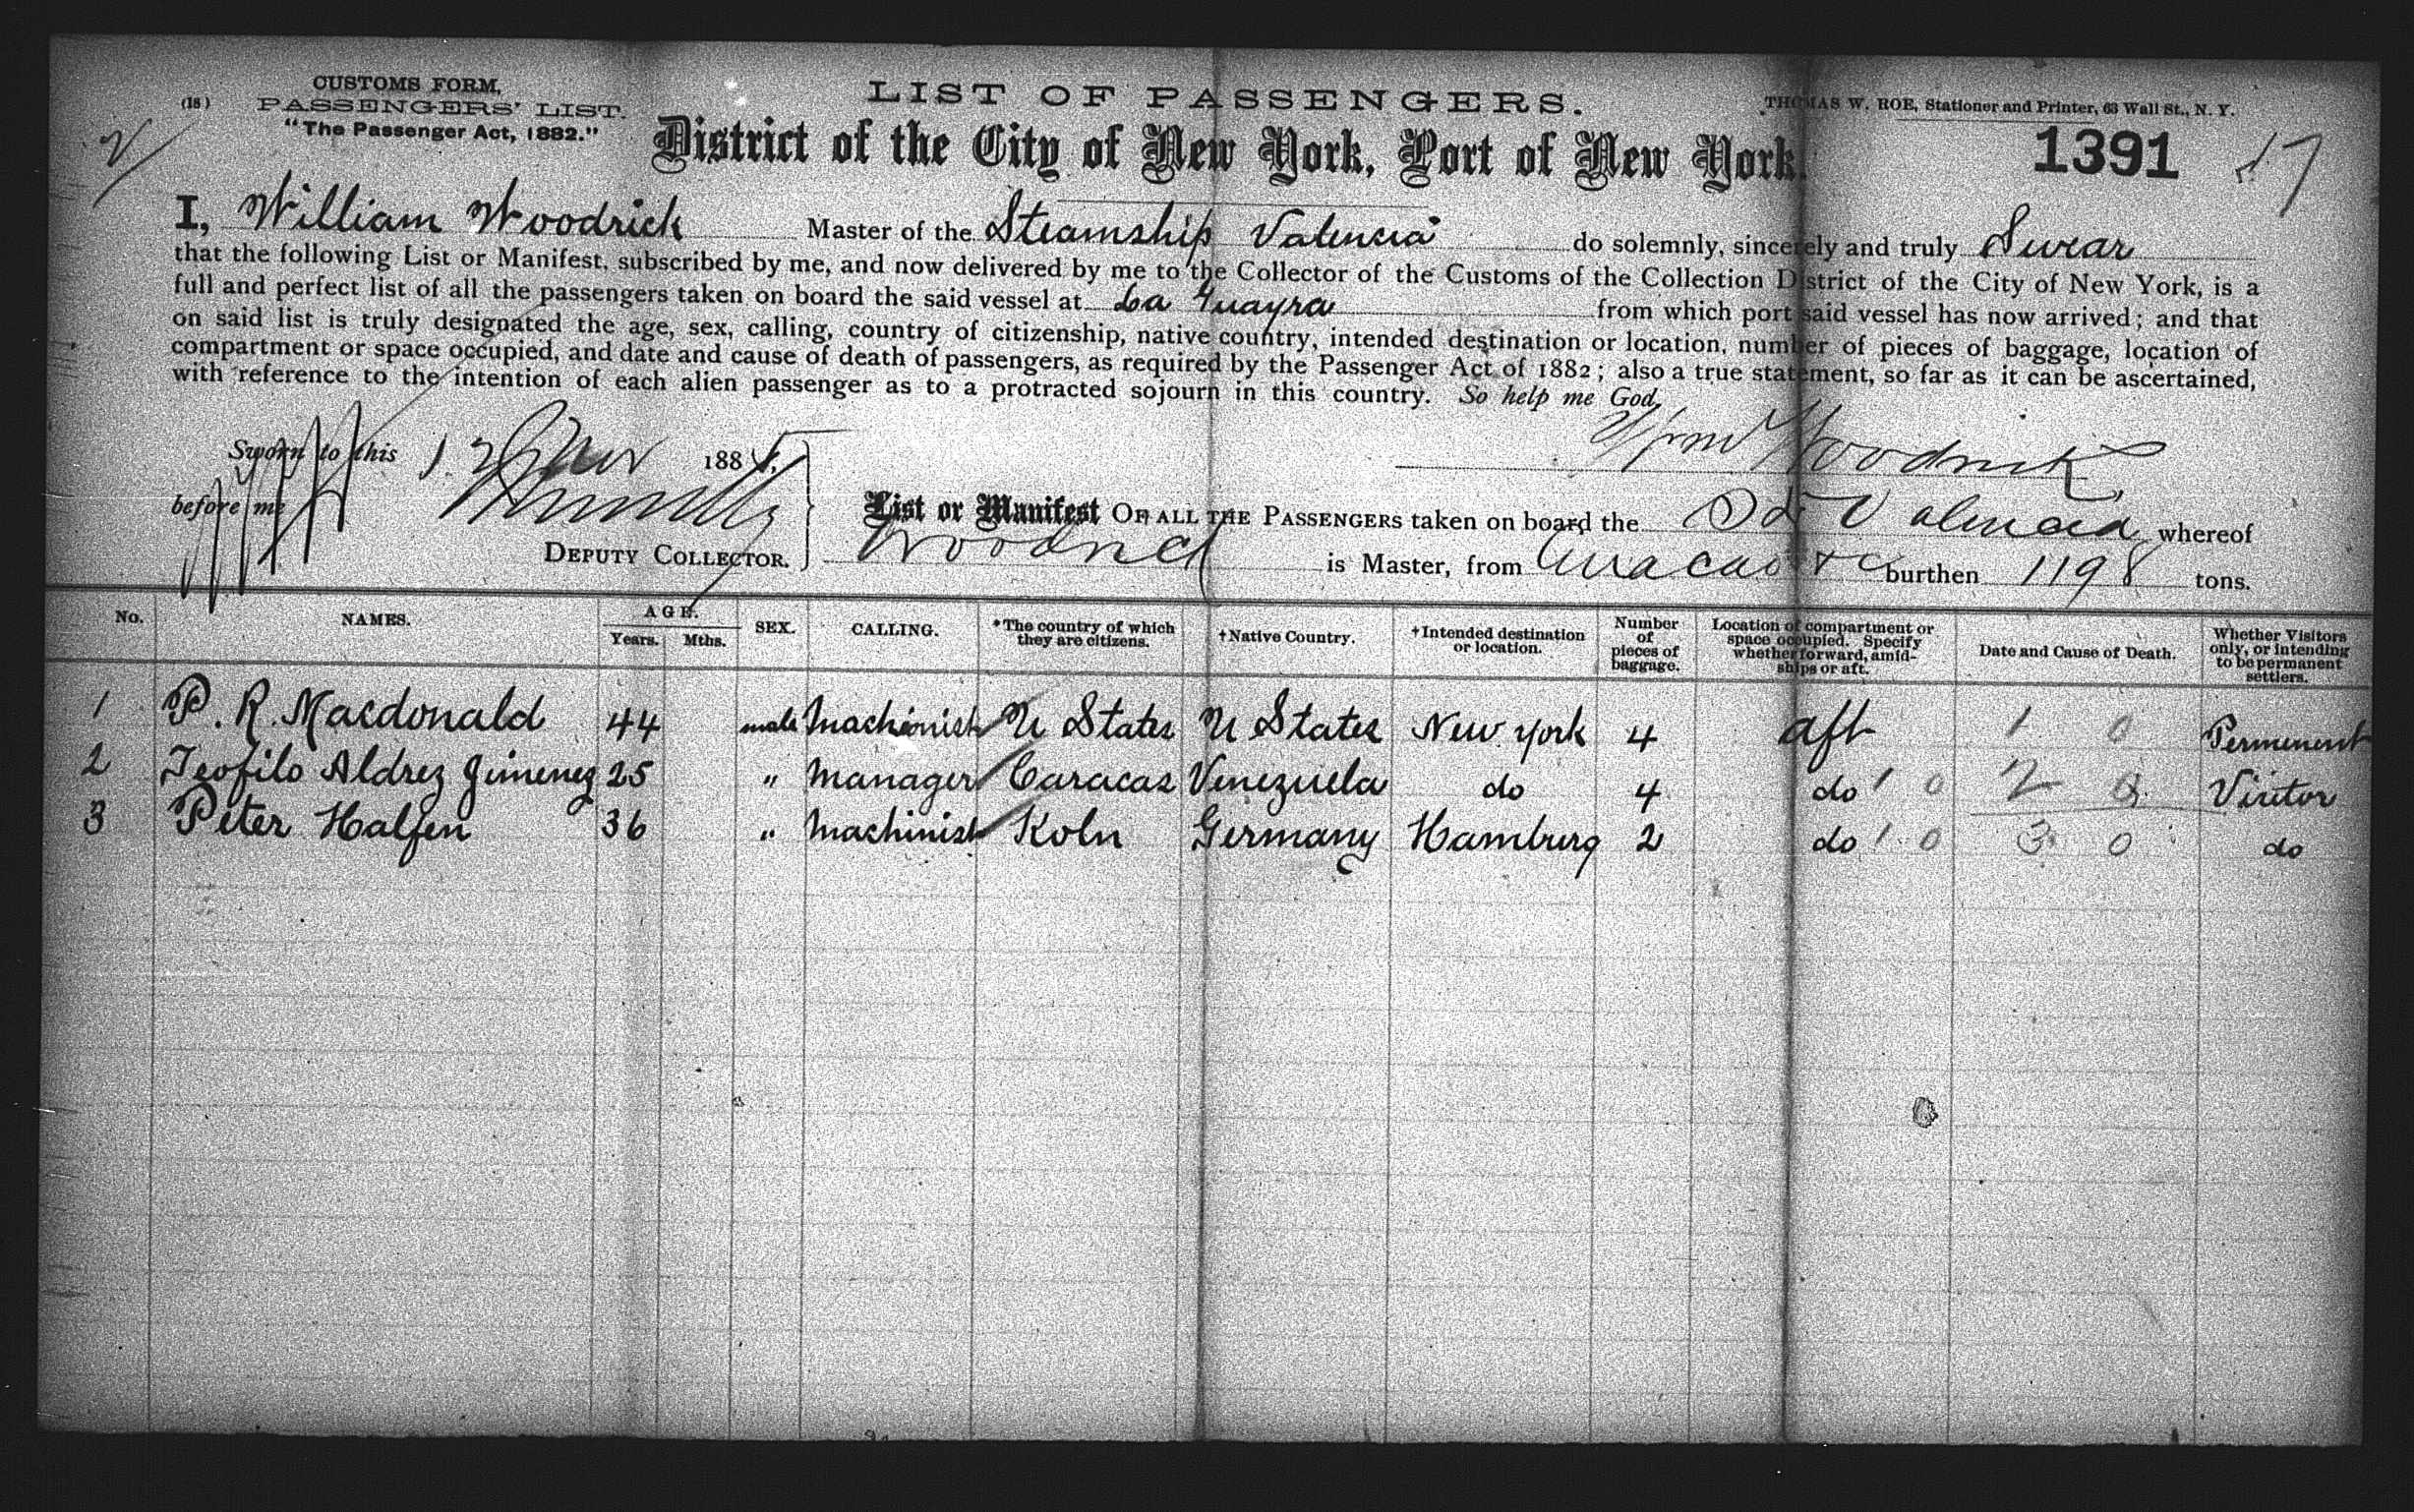 CUSTOMS FORM,
(18) PASSENGERS' LIST.
"The Passenger Act, 1882."
LIST OF PASSENGERS.
THOMAS W. ROE, Stationer and Printer, 63 Wall St., N. Y.
District of the City of New York, Port of New York.
1391
17
I, William Woodrick Master of the Steamship Valencia do solemnly, sincerely and truly Swear
that the following List or Manifest, subscribed by me, and now delivered by me to the Collector of the Customs of the Collection District of the City of New York, is a
full and perfect list of all the passengers taken on board the said vessel at La Guayra from which port said vessel has now arrived; and that
on said list is truly designated the age, sex, calling, country of citizenship, native country, intended destination or location, number of pieces of baggage, location of
compartment or space occupied, and date and cause of death of passengers, as required by the Passenger Act of 1882; also a true statement, so far as it can be ascertained,
with reference to the intention of each alien passenger as to a protracted sojourn in this country. So help me God.
Wm Woodrick
Sworn to this 188
before me
DEPUTY COLLECTOR.
List or Manifest OF ALL THE PASSENGERS taken on board the SS Valencia whereof
Woodrick is Master, from Curacao &c burthen 1198 tons.
No. NAMES. AGE. Years. Mths. SEX. CALLING. *The country of which they are citizens. †Native Country. †Intended destination or location. Number of pieces of baggage. Location of compartment or space occupied. Specify whether forward, amidships or aft. Date and Cause of Death. Whether Visitors only, or intending to be permanent settlers.
1 P. R. Macdonald 44 male Machinist U States U States New York 4 aft 1 0 Permenent
2 Teofilo Aldrez Gimenez 25 " Manager Caracas Venezuela do 4 do 1 0 2 0 Visitor
3 Peter Halfen 36 " Machinist Koln Germany Hamburg 2 do 1 0 3 0 do